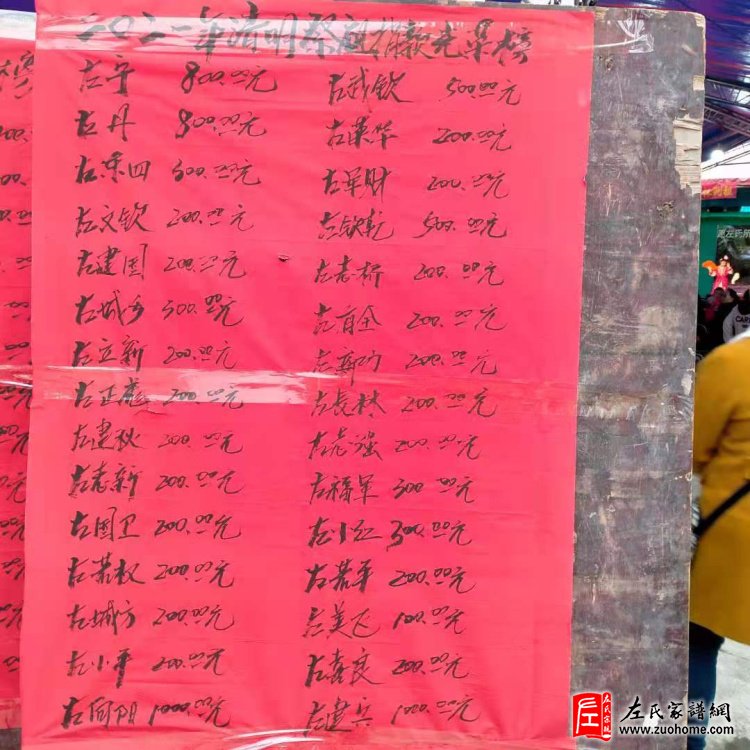 二〇二一年清明祭祖捐款光荣榜
左宁 800.00元 左武钦 500.00元
左丹 800.00元 左荣华 200.00元
左东四 600.00元 左军财 200.00元
左文钦 200.00元 左钦乾 500.00元
左建国 200.00元 左志桥 200.00元
左城乡 300.00元 左有全 200.00元
左立新 200.00元 左新功 200.00元
左正 200.00元 左长林 200.00元
左建秋 200.00元 左志强 200.00元
左志新 200.00元 左福军 300.00元
左国卫 200.00元 左小红 300.00元
左若权 200.00元 左若平 200.00元
左城方 200.00元 左美飞 100.00元
左小平 200.00元 左喜良 200.00元
左向阳 1000.00元 左建兵 1000.00元
左氏家譜網
www.zuohome.com